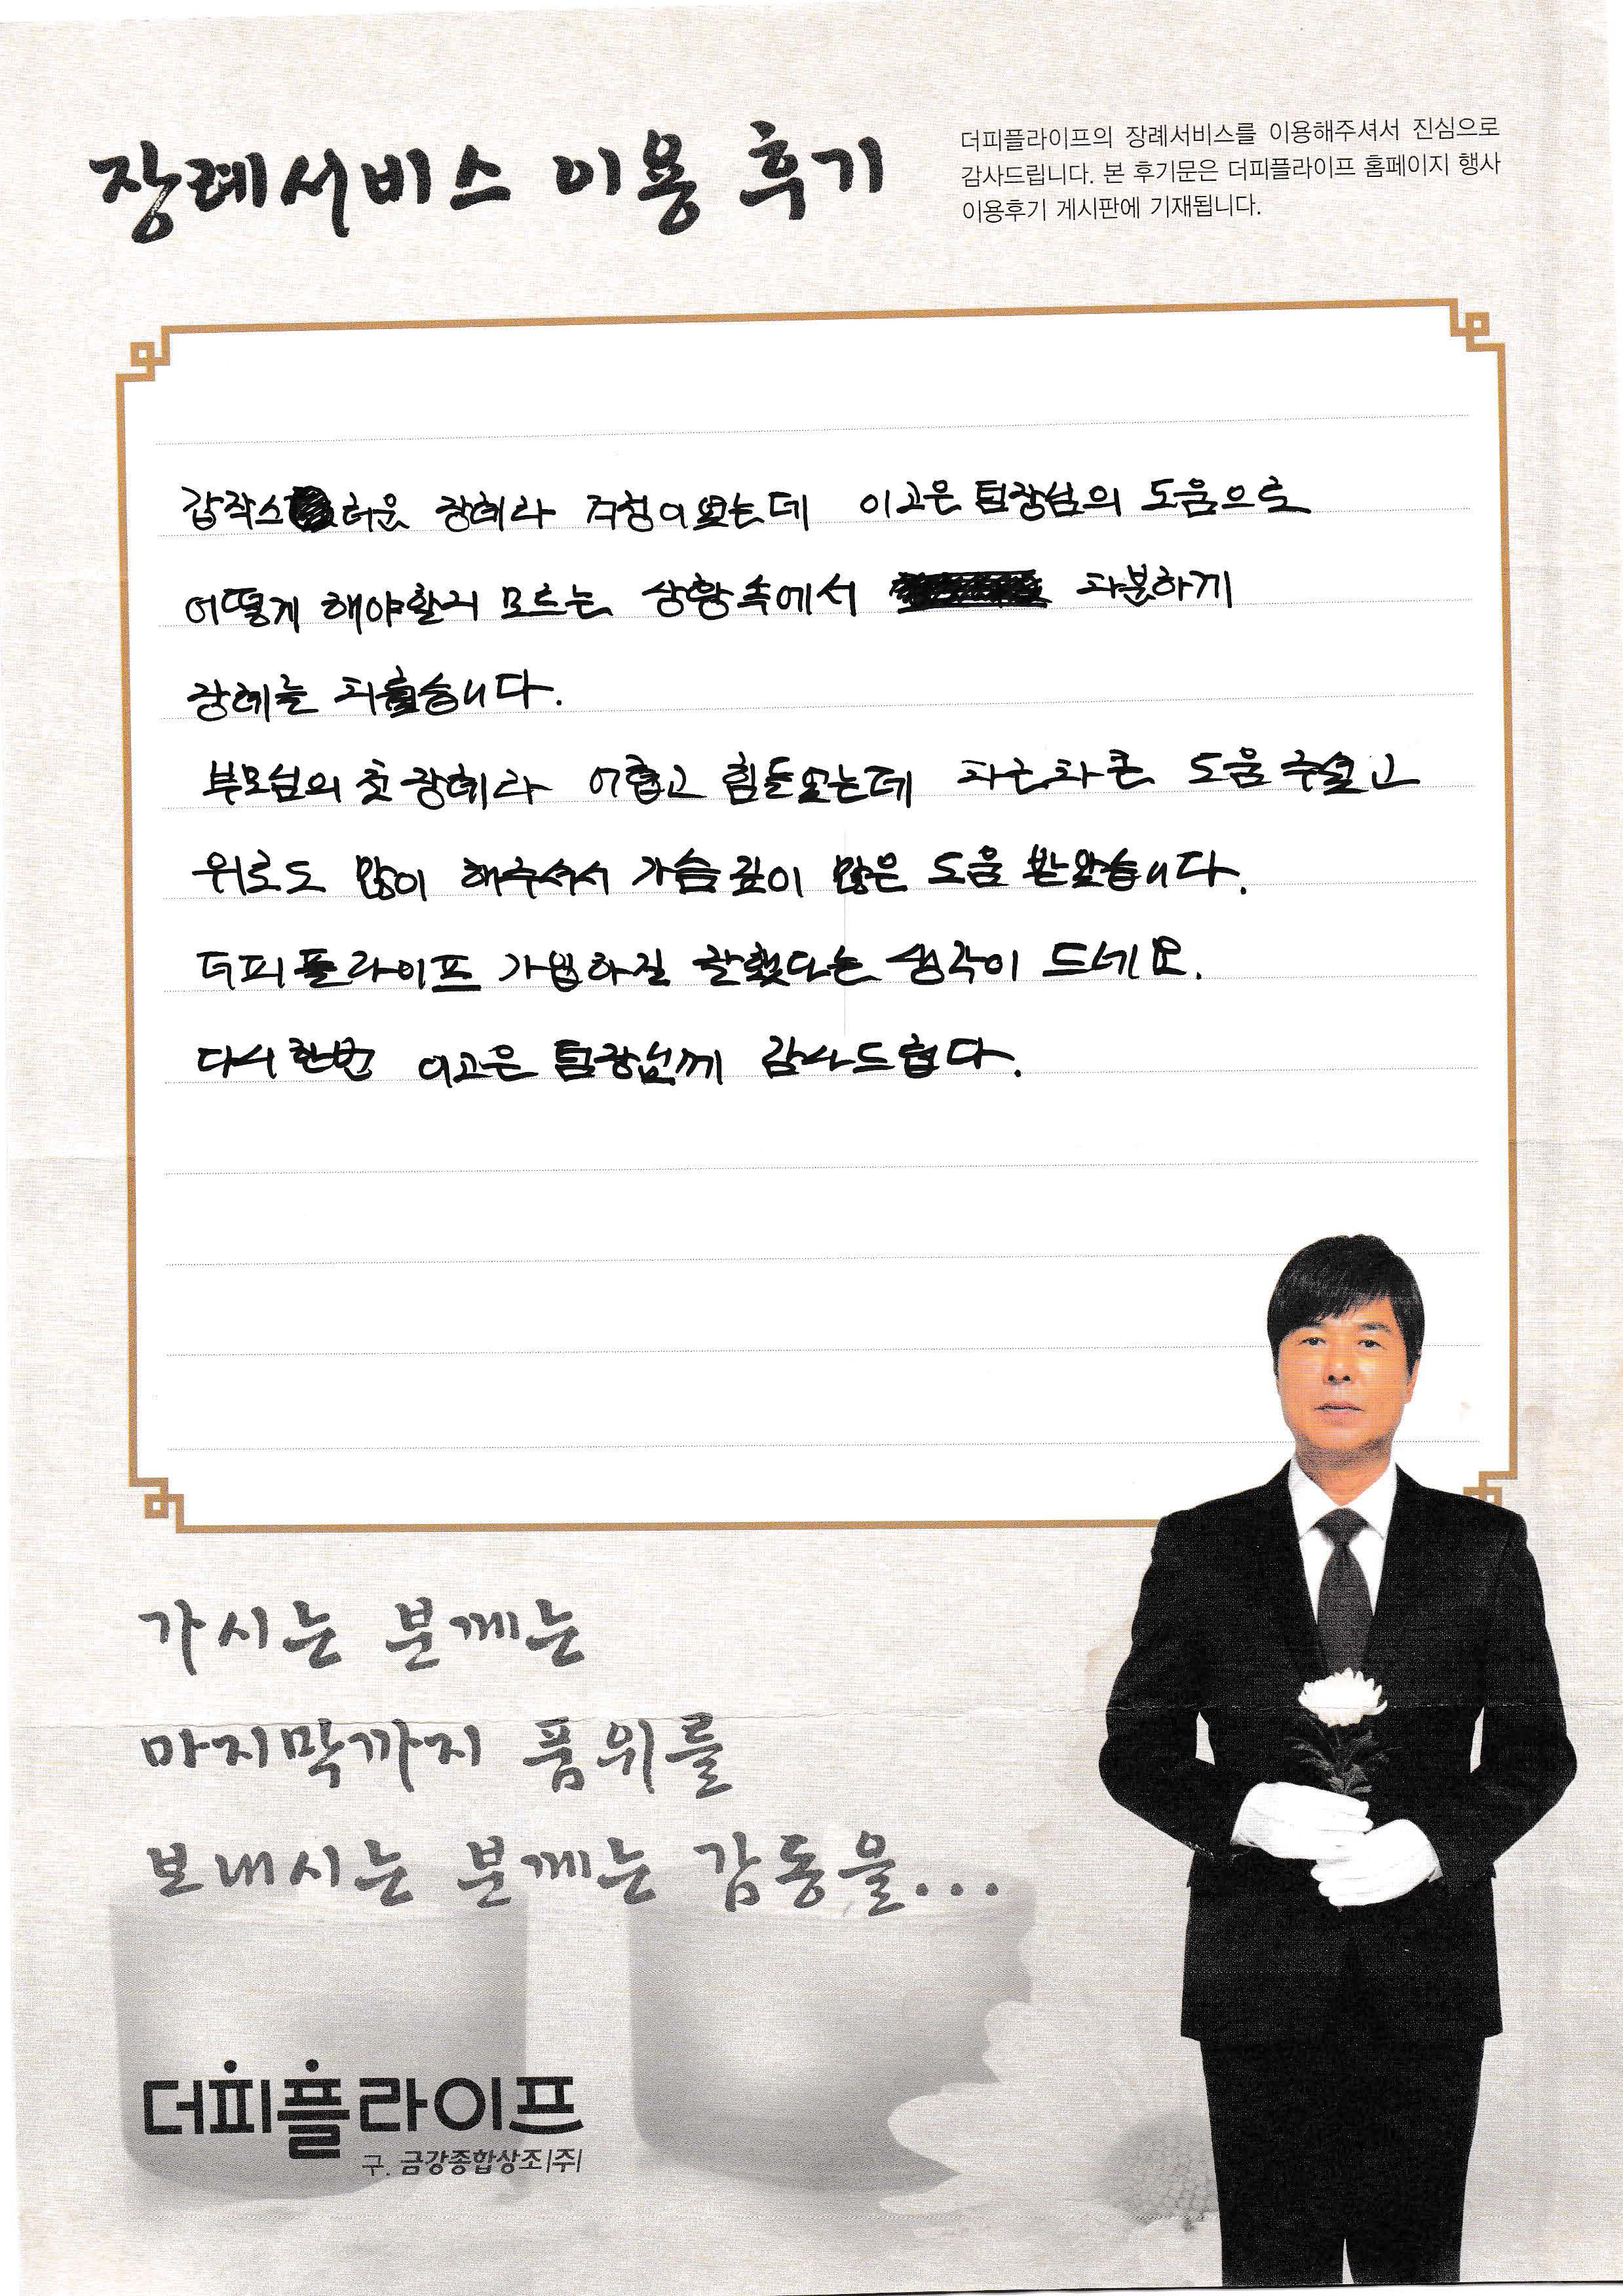 장례서비스 이용 후기
더피플라이프의 장례서비스를 이용해주셔서 진심으로
감사드립니다. 본 후기문은 더피플라이프 홈페이지 행사
이용후기 게시판에 기재됩니다.
갑작스러운 장례라 걱정이였는데 이고은 팀장님의 도움으로
어떻게 해야할지 모르는 상황속에서 차분하게
장례를 치렀습니다.
부모님의 첫 장례라 어렵고 힘들었는데 차근차근 도움 주셨고
위로도 많이 해주셔서 가슴 깊이 많은 도움 받았습니다.
더피플라이프 가입하길 잘했다는 생각이 드네요.
다시한번 이고은 팀장님께 감사드립다.
가시는 분께는
마지막까지 품위를
보내시는 분께는 감동을...
더피플라이프
구. 금강종합상조|주|